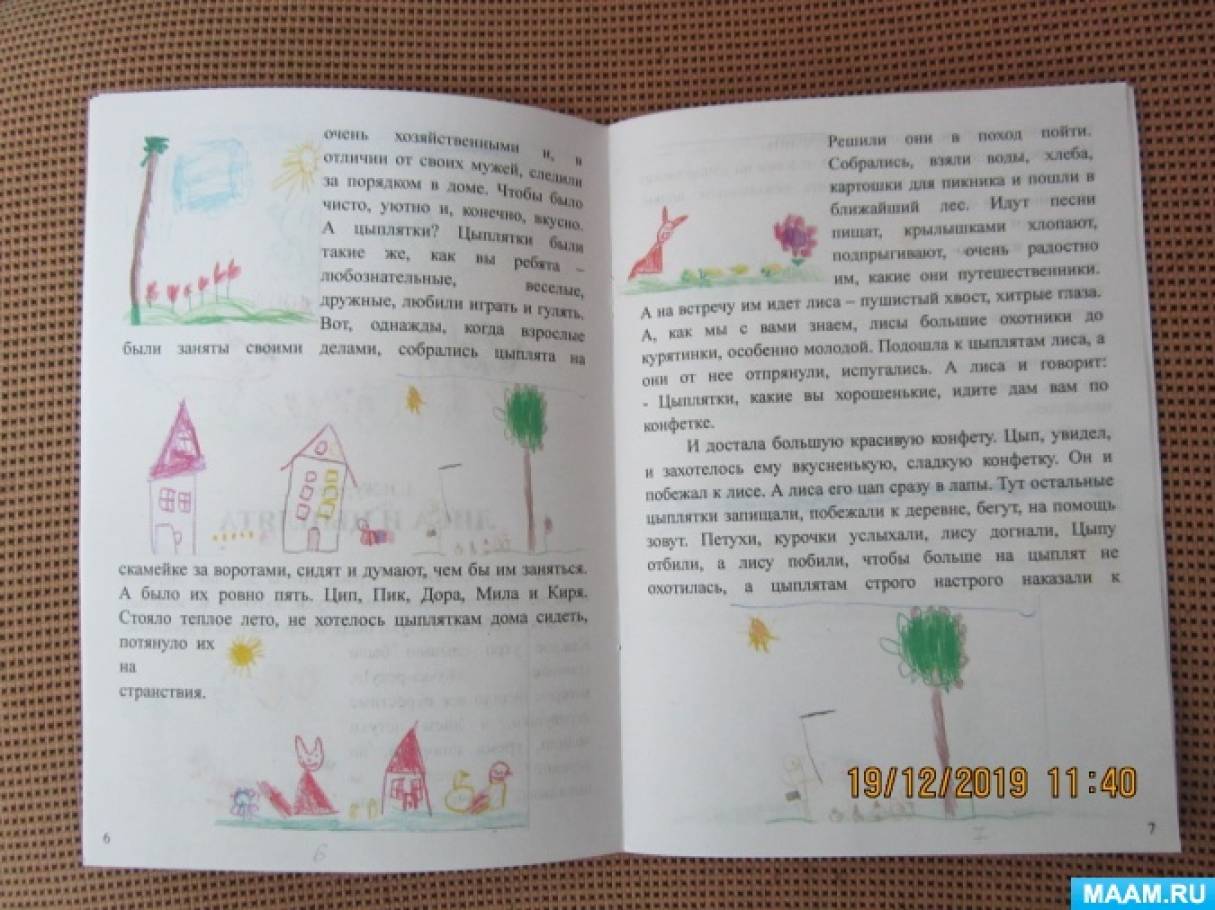 очень хозяйственными и, в
отличии от своих мужей, следили
за порядком в доме. Чтобы было
чисто, уютно и, конечно, вкусно.
А цыплятки? Цыплятки были
такие же, как вы ребята –
любознательные, веселые,
дружные, любили играть и гулять.
Вот, однажды, когда взрослые
были заняты своими делами, собрались цыплята на
скамейке за воротами, сидят и думают, чем бы им заняться.
А было их ровно пять. Цип, Пик, Дора, Мила и Киря.
Стояло теплое лето, не хотелось цыпляткам дома сидеть,
потянуло их
на
странствия.
6
6
Решили они в поход пойти.
Собрались, взяли воды, хлеба,
картошки для пикника и пошли в
ближайший лес. Идут песни
пищат, крылышками хлопают,
подпрыгивают, очень радостно
им, какие они путешественники.
А на встречу им идет лиса – пушистый хвост, хитрые глаза.
А, как мы с вами знаем, лисы большие охотники до
курятинки, особенно молодой. Подошла к цыплятам лиса, а
они от нее отпрянули, испугались. А лиса и говорит:
- Цыплятки, какие вы хорошенькие, идите дам вам по
конфетке.
И достала большую красивую конфету. Цып, увидел,
и захотелось ему вкусненькую, сладкую конфетку. Он и
побежал к лисе. А лиса его цап сразу в лапы. Тут остальные
цыплятки запищали, побежали к деревне, бегут, на помощь
зовут. Петухи, курочки услыхали, лису догнали, Цыпу
отбили, а лису побили, чтобы больше на цыплят не
охотилась, а цыплятам строго настрого наказали к
19/12/2019 11:40
7
7
MAAM.RU